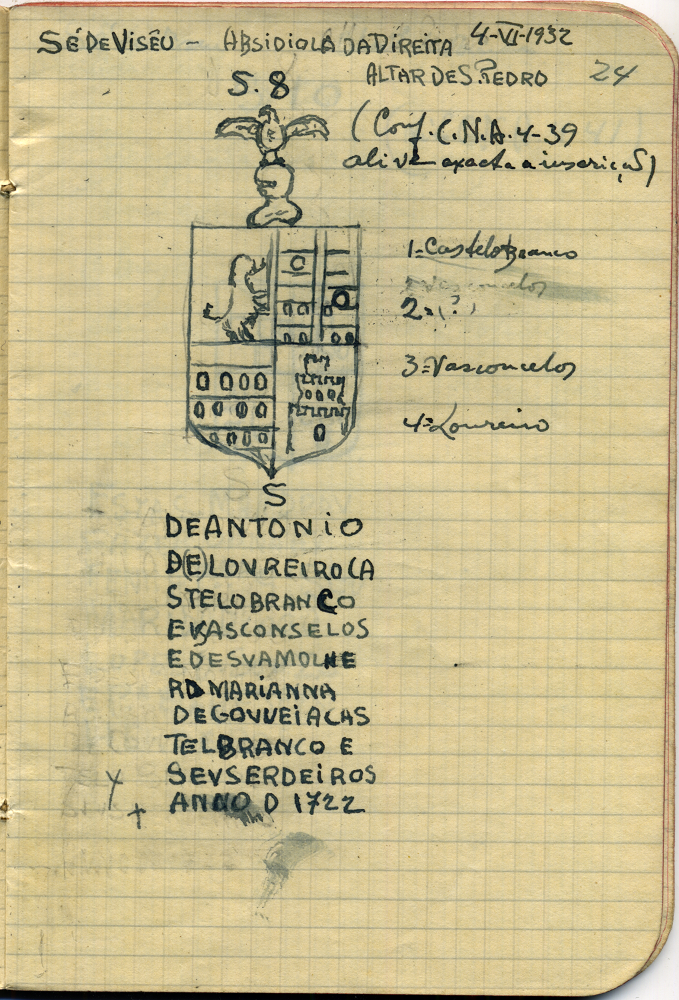 SÉ DE VISEU - ABSIDIOLA DA DIREITA 4-VI-1932
ALTAR DE S. PEDRO 24
S. 8
(Conf. C.N.A. 4-39
ali vem exacta a inscrição)
1=Castelo Branco
2 Vasconcelos
2=(?)
3=Vasconcelos
4=Loureiro
S
S
DEANTONIO
D(E)LOVREIROCA
STELOBRANCO
EVASCONSELOS
EDESVAMOLHE
RDMARIANNA
DEGOVVEIACAS
TELBRANCO E
SEVSERDEIROS
ANNO D 1722